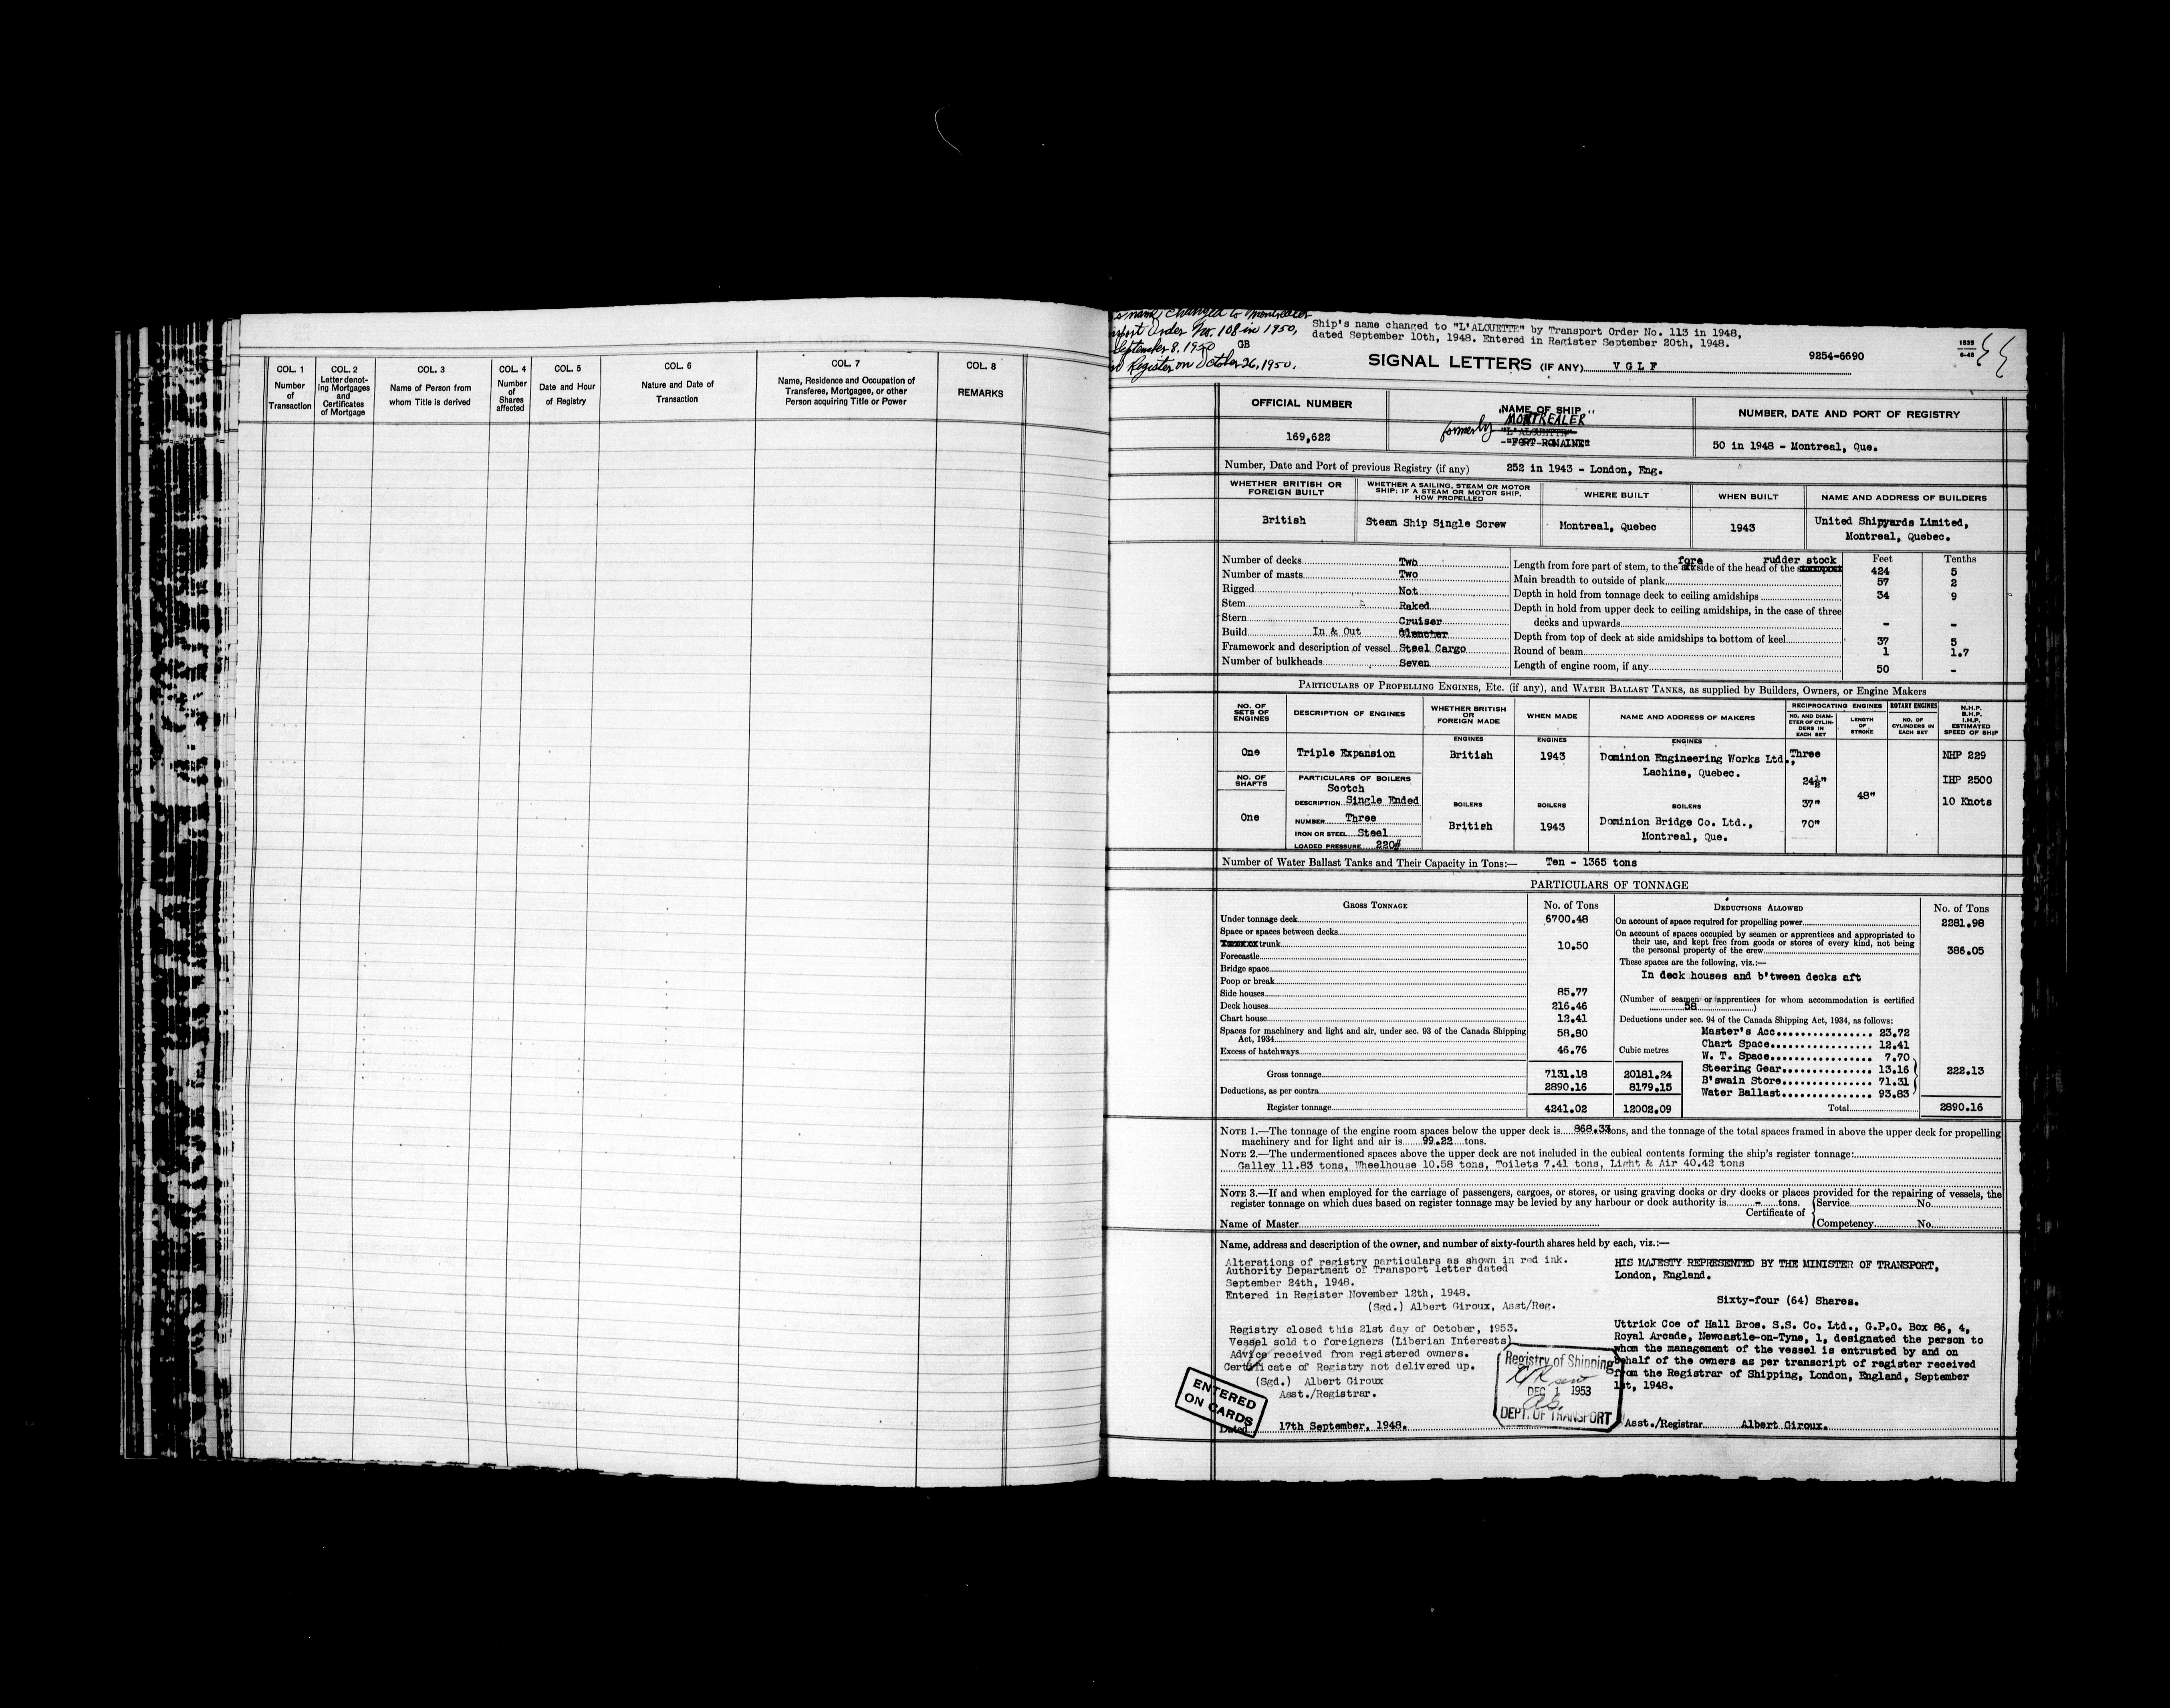 COL. 1
Number
of
Transaction
COL. 2
Letter denot-
ing Mortgages
and
Certificates
of Mortgage
COL. 3
Name of Person from
whom Title is derived
COL. 4
Number
of
Shares
affected
COL. 5
Date and Hour
of Registry
COL. 6
Nature and Date of
Transaction
COL. 7
Name, Residence and Occupation of
Transferee, Mortgagee, or other
Person acquiring Title or Power
COL. 8
REMARKS
s name changed to Montrealer
Order No. 108 in 1950,
September 8, 1950 GB
Register on October 26, 1950.
Ship's name changed to "L'ALOUETTE" by Transport Order No. 113 in 1948,
dated September 10th, 1948. Entered in Register September 20th, 1948.
SIGNAL LETTERS (IF ANY) V G L F
9254-6690
OFFICIAL NUMBER
169,622
NAME OF SHIP
MONTREALER
formerly "L'ALOUETTE"
"FORT ROMAINE"
NUMBER, DATE AND PORT OF REGISTRY
50 in 1948 - Montreal, Que.
Number, Date and Port of previous Registry (if any) 252 in 1943 - London, Eng.
WHETHER BRITISH OR
FOREIGN BUILT
British
WHETHER A SAILING, STEAM OR MOTOR
SHIP; IF A STEAM OR MOTOR SHIP,
HOW PROPELLED
Steam Ship Single Screw
WHERE BUILT
Montreal, Quebec
WHEN BUILT
1943
NAME AND ADDRESS OF BUILDERS
United Shipyards Limited,
Montreal, Quebec.
Number of decks Two
Number of masts Two
Rigged Not
Stem Raked
Stern Cruiser
Build In & Out Clencher
Framework and description of vessel Steel Cargo
Number of bulkheads Seven
Feet Tenths
fore rudder stock
Length from fore part of stem, to the side of the head of the 424 5
Main breadth to outside of plank 57 2
Depth in hold from tonnage deck to ceiling amidships 34 9
Depth in hold from upper deck to ceiling amidships, in the case of three
decks and upwards - -
Depth from top of deck at side amidships to bottom of keel 37 5
Round of beam 1 1.7
Length of engine room, if any 50 -
PARTICULARS OF PROPELLING ENGINES, ETC. (if any), AND WATER BALLAST TANKS, as supplied by Builders, Owners, or Engine Makers
NO. OF
SETS OF
ENGINES
One
NO. OF
SHAFTS
One
DESCRIPTION OF ENGINES
Triple Expansion
PARTICULARS OF BOILERS
Scotch
DESCRIPTION Single Ended
NUMBER Three
IRON OR STEEL Steel
LOADED PRESSURE 220#
WHETHER BRITISH
OR
FOREIGN MADE
ENGINES
British
BOILERS
British
WHEN MADE
ENGINES
1943
BOILERS
1943
NAME AND ADDRESS OF MAKERS
ENGINES
Dominion Engineering Works Ltd.,
Lachine, Quebec.
BOILERS
Dominion Bridge Co. Ltd.,
Montreal, Que.
RECIPROCATING ENGINES
NO. AND DIAM-
ETER OF CYLIN-
DERS IN
EACH SET
Three
24½"
37"
70"
LENGTH
OF
STROKE
48"
ROTARY ENGINES
NO. OF
CYLINDERS IN
EACH SET
N.H.P.
B.H.P.
I.H.P.
ESTIMATED
SPEED OF SHIP
NHP 229
IHP 2500
10 Knots
Number of Water Ballast Tanks and Their Capacity in Tons:— Ten - 1365 tons
PARTICULARS OF TONNAGE
GROSS TONNAGE No. of Tons
Under tonnage deck 6700.48
Space or spaces between decks
trunk 10.50
Forecastle
Bridge space
Poop or break
Side houses 85.77
Deck houses 216.46
Chart house 12.41
Spaces for machinery and light and air, under sec. 93 of the Canada Shipping
Act, 1934 58.80
Excess of hatchways 46.76 Cubic metres
Gross tonnage 7131.18 20181.24
Deductions, as per contra 2890.16 8179.15
Register tonnage 4241.02 12002.09
DEDUCTIONS ALLOWED No. of Tons
On account of space required for propelling power 2281.98
On account of spaces occupied by seamen or apprentices and appropriated to
their use, and kept free from goods or stores of every kind, not being
the personal property of the crew 386.05
These spaces are the following, viz.:—
In deck houses and b'tween decks aft
(Number of seamen or apprentices for whom accommodation is certified
58 )
Deductions under sec. 94 of the Canada Shipping Act, 1934, as follows:
Master's Acc. 23.72
Chart Space 12.41
W. T. Space 7.70
Steering Gear 13.16 222.13
B'swain Store 71.31
Water Ballast 93.83
Total 2890.16
NOTE 1.—The tonnage of the engine room spaces below the upper deck is 868.33 tons, and the tonnage of the total spaces framed in above the upper deck for propelling
machinery and for light and air is 99.22 tons.
NOTE 2.—The undermentioned spaces above the upper deck are not included in the cubical contents forming the ship's register tonnage:
Galley 11.83 tons, Wheelhouse 10.58 tons, Toilets 7.41 tons, Light & Air 40.42 tons
NOTE 3.—If and when employed for the carriage of passengers, cargoes, or stores, or using graving docks or dry docks or places provided for the repairing of vessels, the
register tonnage on which dues based on register tonnage may be levied by any harbour or dock authority is - tons.
Name of Master
Certificate of
Service No.
Competency No.
Name, address and description of the owner, and number of sixty-fourth shares held by each, viz.:—
Alterations of registry particulars as shown in red ink.
Authority Department of Transport letter dated
September 24th, 1948.
Entered in Register November 12th, 1948.
(Sgd.) Albert Giroux, Asst/Reg.
Registry closed this 21st day of October, 1953.
Vessel sold to foreigners (Liberian Interests)
Advice received from registered owners.
Certificate of Registry not delivered up.
(Sgd.) Albert Giroux
Asst./Registrar.
HIS MAJESTY REPRESENTED BY THE MINISTER OF TRANSPORT,
London, England.
Sixty-four (64) Shares.
Uttrick Coe of Hall Bros. S.S. Co. Ltd., G.P.O. Box 86, 4,
Royal Arcade, Newcastle-on-Tyne, 1, designated the person to
whom the management of the vessel is entrusted by and on
behalf of the owners as per transcript of register received
from the Registrar of Shipping, London, England, September
1st, 1948.
ENTERED
ON CARDS
Registry of Shipping
DEC 1 1953
DEPT. OF TRANSPORT
Dated 17th September, 1948.
Asst./Registrar Albert Giroux.